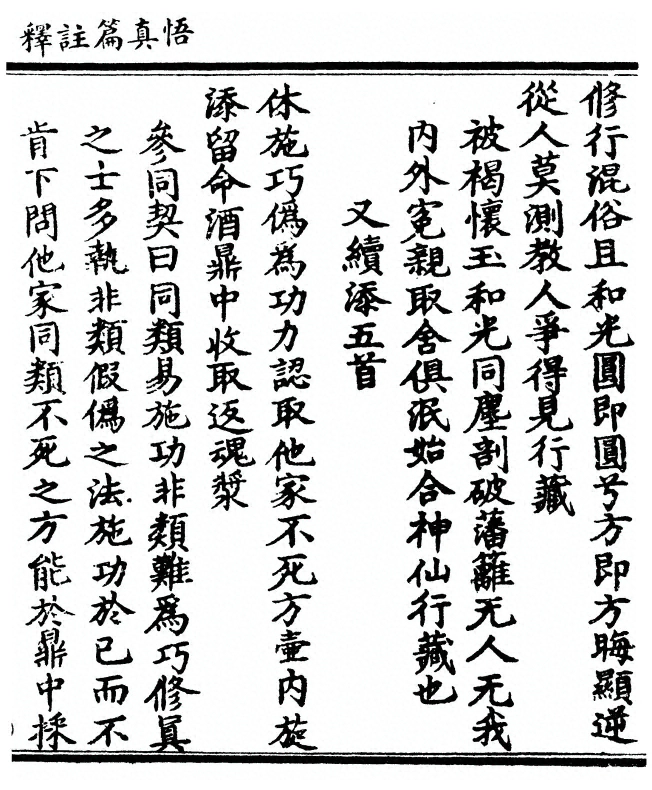 悟真篇註釋
修行混俗且和光圓即圓兮方即方晦顯逆
從人莫測教人爭得見行藏
被褐懷玉和光同塵剖破藩籬无人无我
内外寃親取舍俱泯始合神仙行藏也
又續添五首
休施巧偽為功力認取他家不死方壷内旋
添留命酒鼎中收取返魂漿
參同契曰同類易施功非類難為巧修真
之士多執非類假偽之法施功於已而不
肯下問他家同類不死之方能於鼎中採